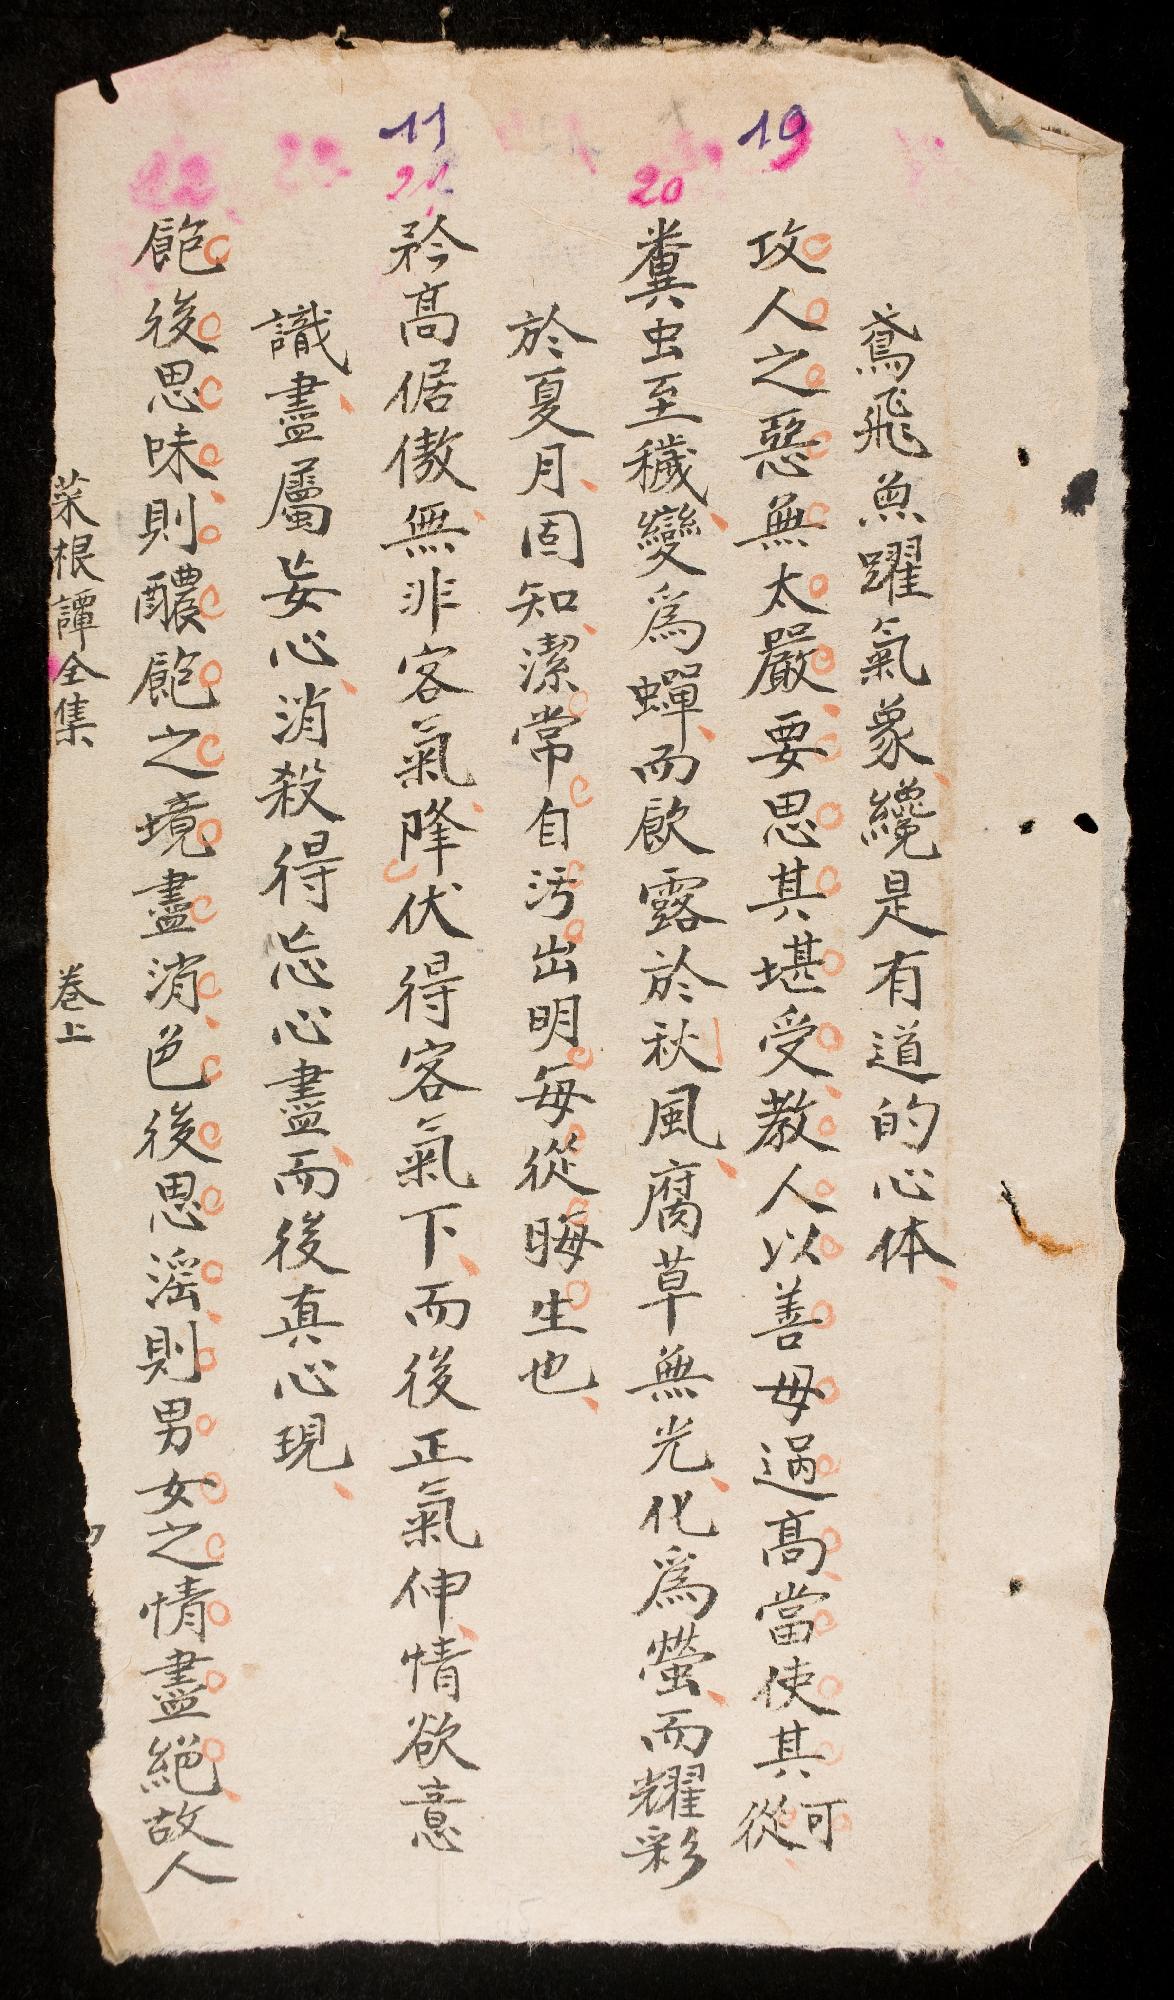 鳶飛魚躍氣象纔是有道的心体
19
攻人之惡無太嚴要思其堪受教人以善毋過高當使其可從
20
糞虫至穢變爲蟬而飮露於秋風腐草無光化爲螢而耀彩
於夏月固知潔常自汚出明每從晦生也
11
21
矜高倨傲無非客氣降伏得客氣下而後正氣伸情欲意
識盡屬妄心消殺得忘心盡而後真心現
22
飽後思味則醲飽之境盡消色後思滛則男女之情盡絕故人
菜根譚全集 卷上